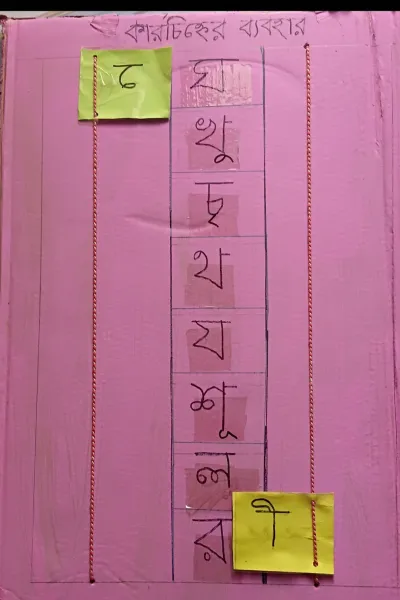 কারচিহ্নের ব্যবহার
ে ঘ
খু
চ
থ
য
শূ
ী